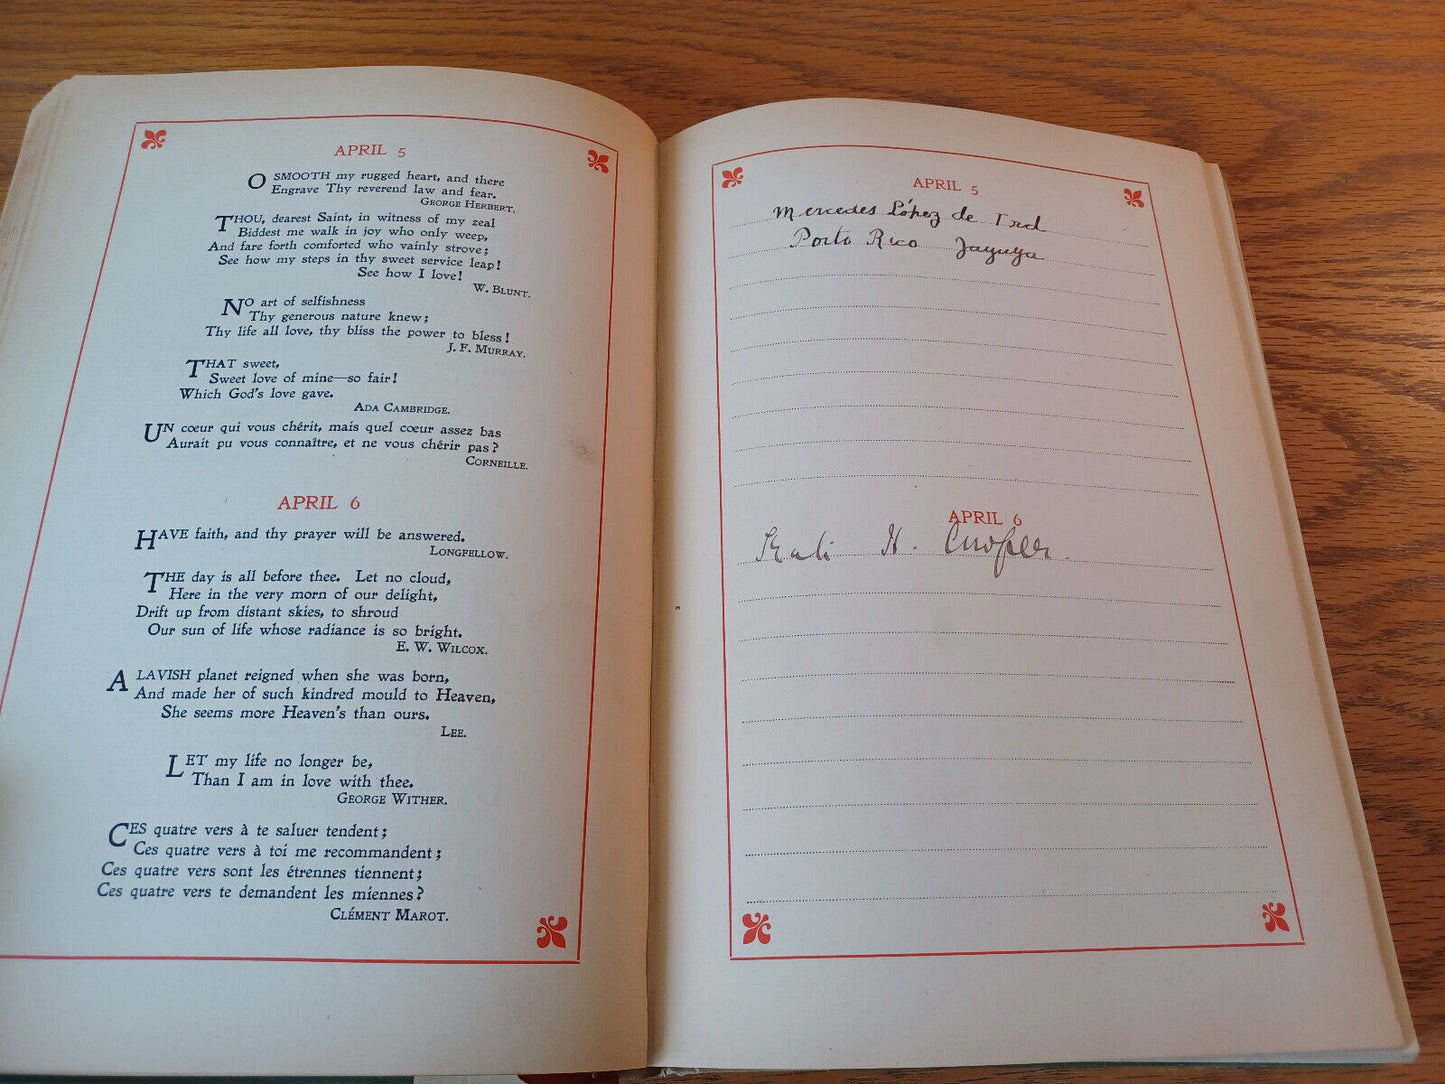 APRIL 5
O SMOOTH my rugged heart, and there
Engrave Thy reverend law and fear.
GEORGE HERBERT.
THOU, dearest Saint, in witness of my zeal
Biddest me walk in joy who only weep,
And fare forth comforted who vainly strove;
See how my steps in thy sweet service leap!
See how I love!
W. BLUNT.
NO art of selfishness
Thy generous nature knew;
Thy life all love, thy bliss the power to bless!
J. F. MURRAY.
THAT sweet,
Sweet love of mine—so fair!
Which God's love gave.
ADA CAMBRIDGE.
UN cœur qui vous chérit, mais quel cœur assez bas
Aurait pu vous connaître, et ne vous chérir pas?
CORNEILLE.
APRIL 6
HAVE faith, and thy prayer will be answered.
LONGFELLOW.
THE day is all before thee. Let no cloud,
Here in the very morn of our delight,
Drift up from distant skies, to shroud
Our sun of life whose radiance is so bright.
E. W. WILCOX.
A LAVISH planet reigned when she was born,
And made her of such kindred mould to Heaven,
She seems more Heaven's than ours.
LEE.
LET my life no longer be,
Than I am in love with thee.
GEORGE WITHER.
CES quatre vers à te saluer tendent;
Ces quatre vers à toi me recommandent;
Ces quatre vers sont les étrennes tiennent;
Ces quatre vers te demandent les miennes?
CLÉMENT MAROT.
APRIL 5
Mercedes López de
Porto Rico Jayuya
APRIL 6
H.